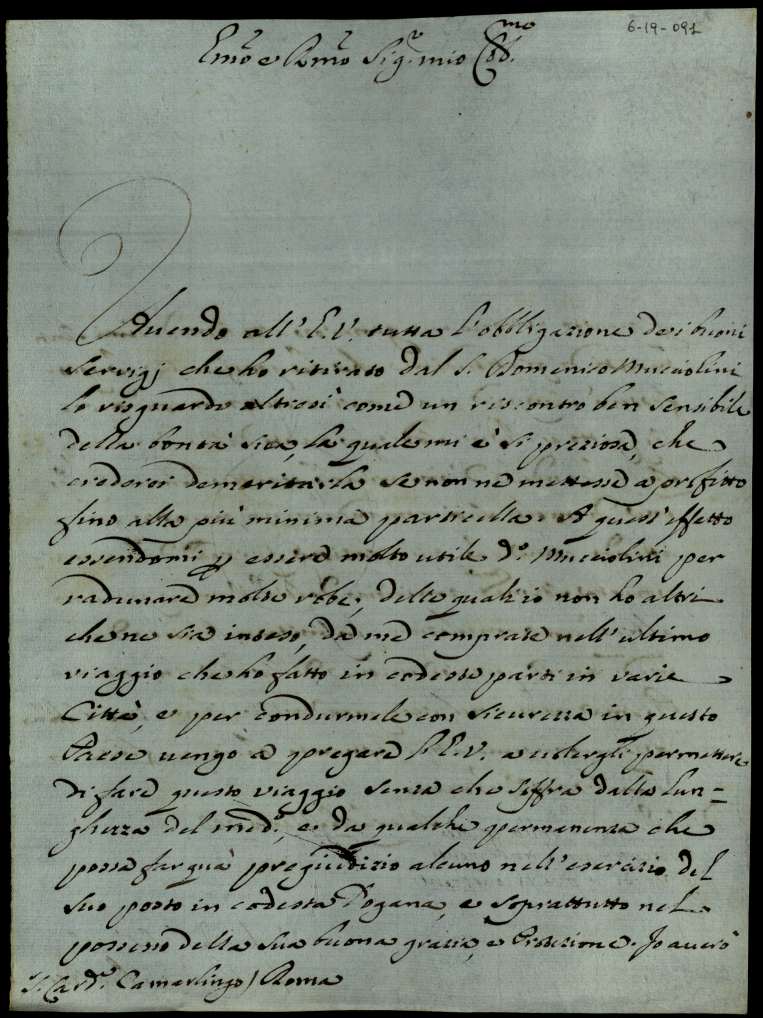 6-19-091
Emo e Rmo Sigr mio Colmo
Avendo all'E.V. tutta l'obbligazione dei buoni
servigj che ho ritirato dal S. Domenico Mucciolini
lo risguardo altresì come un riscontro ben sensibile
della bontà sua, la quale mi è sì preziosa, che
crederei demeritarla se non ne mettesse a profitto
fino alla più minima particella. A quest'effetto
essendomi p essere molto utile do. Mucciolini per
radunare molte robe, delle quali io non ho altri
che ne sia inteso, da me comprate nell'ultimo
viaggio che ho fatto in codeste parti in varie
Città, e per condurmele con sicurezza in questo
Paese vengo a pregare l'E.V. a volergli permettere
di fare questo viaggio senza che soffra dalla lun=
ghezza del medo, e da qualche permanenza che
possa far quà pregiudizio alcuno nell'esercizio del
suo posto in codesta Dogana, e soprattutto nel
possesso della sua buona grazia, e Protezione. Io averò
S. Cardl. Camarlingo / Roma